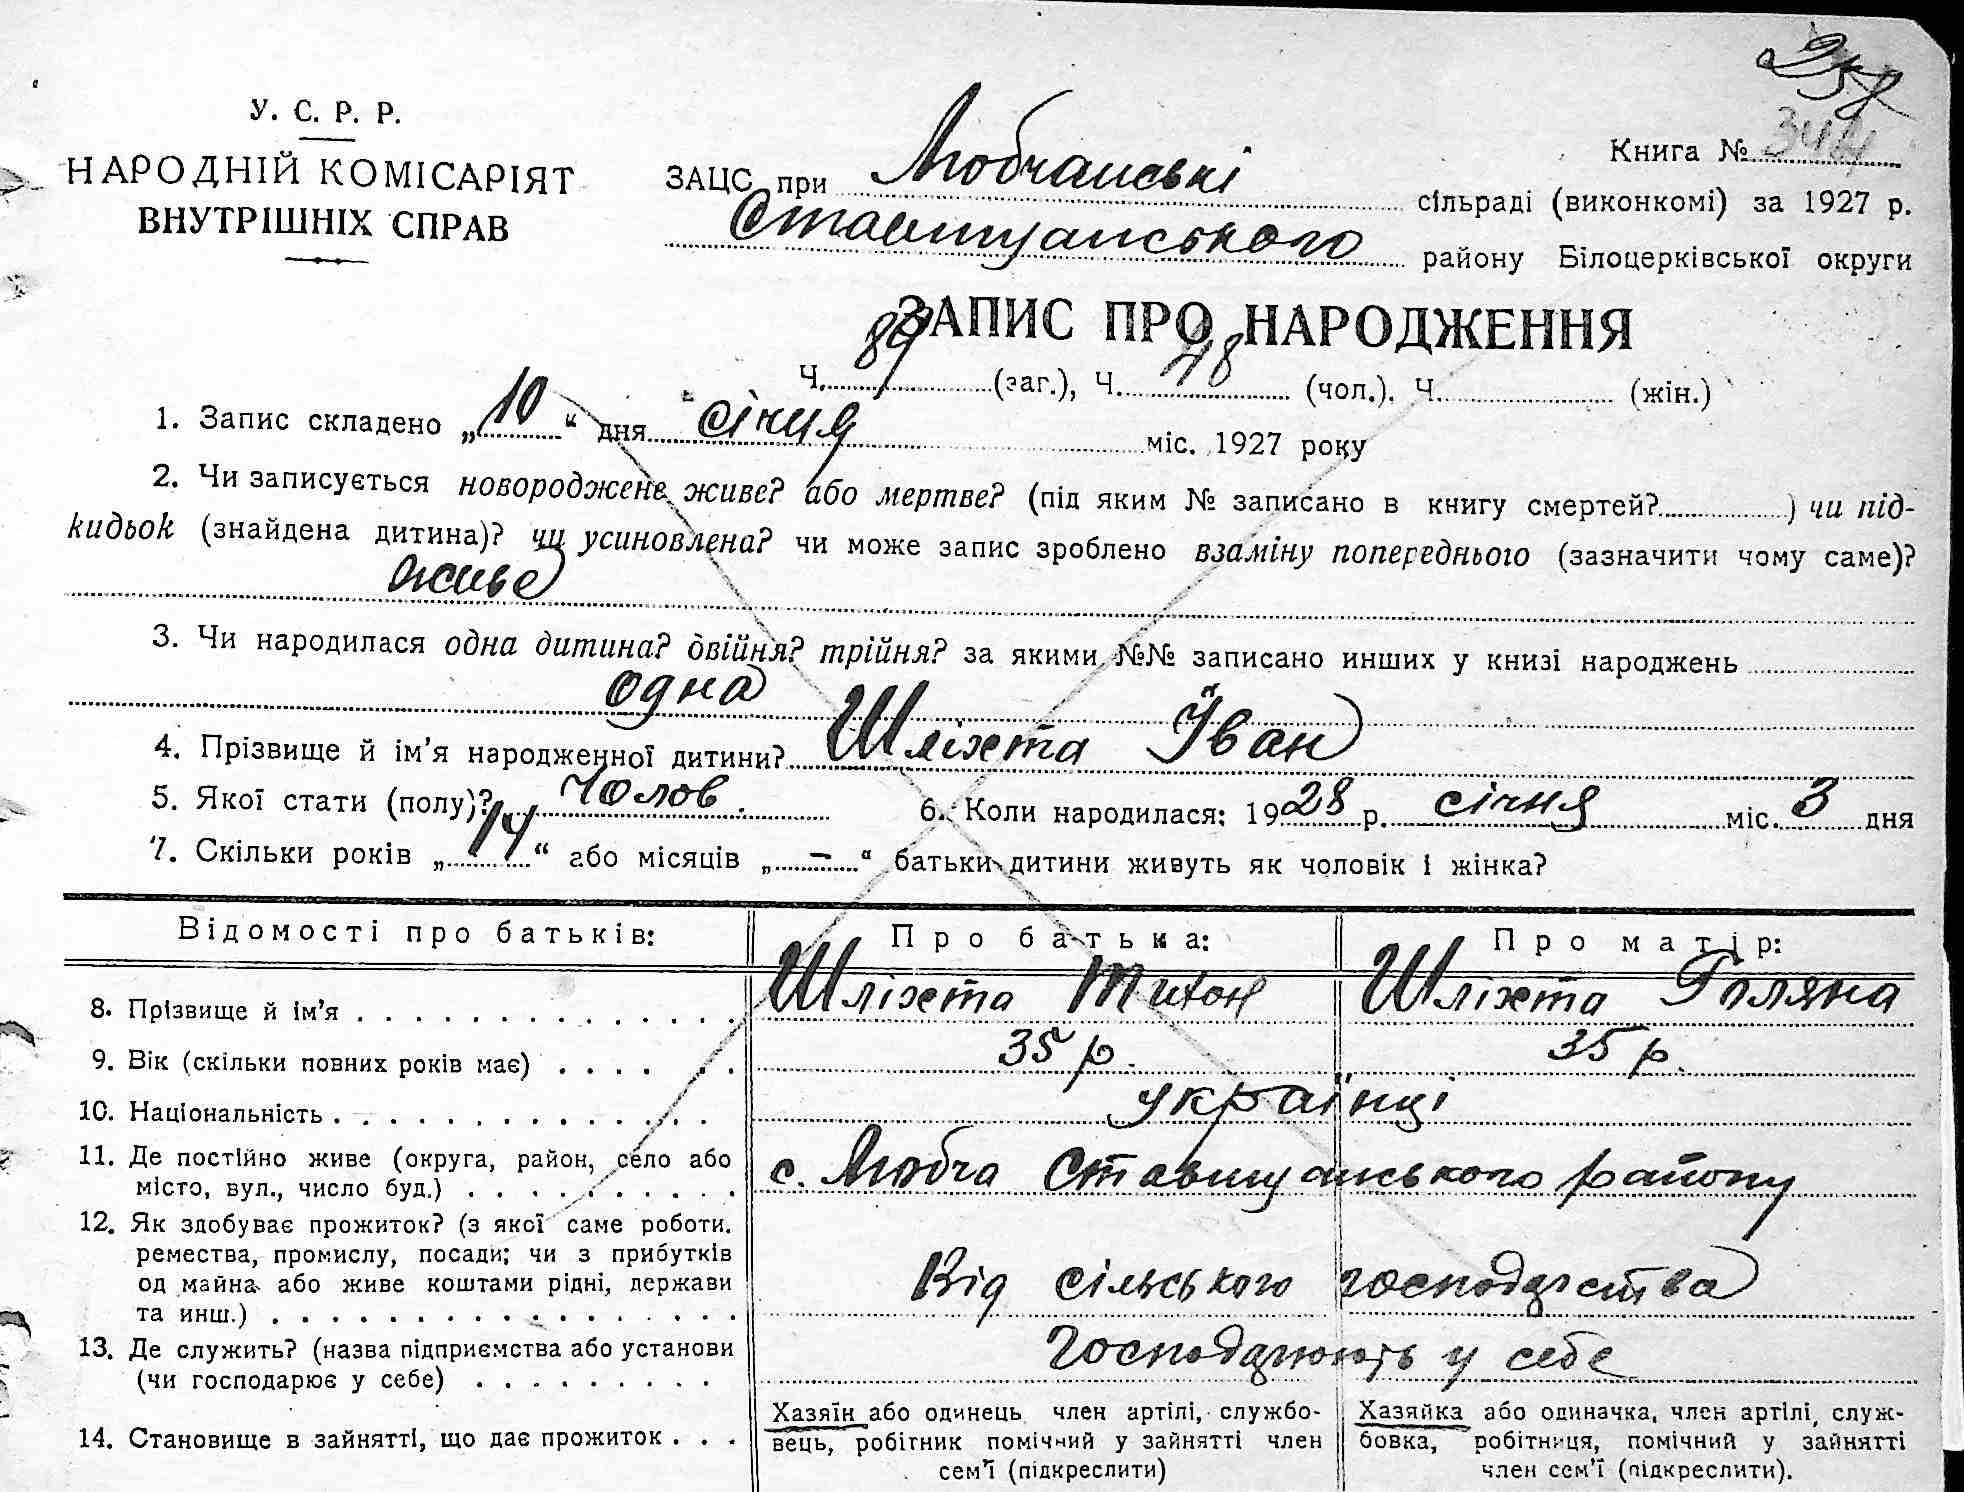 258
У. С. Р. Р.
НАРОДНІЙ КОМІСАРІЯТ
ВНУТРІШНІХ СПРАВ
Книга № 344
ЗАЦС при Любчанські сільраді (виконкомі) за 1927 р.
Ставищанського району Білоцерківської округи
ЗАПИС ПРО НАРОДЖЕННЯ
Ч. 89 (заг.), Ч. 48 (чол.). Ч. (жін.)
1. Запис складено „10“ дня січня міс. 1927 року
2. Чи записується новороджене живе? або мертве? (під яким № записано в книгу смертей? ) чи під-
кидьок (знайдена дитина)? чи усиновлена? чи може запис зроблено взаміну попереднього (зазначити чому саме)?
живе
3. Чи народилася одна дитина? двійня? трійня? за якими №№ записано инших у книзі народжень
одна
4. Прізвище й ім’я народженної дитини? Шліхта Іван
5. Якої стати (полу)? Чолов. 6. Коли народилася: 1928 р. січня міс. 3 дня
7. Скільки років „14“ або місяців „–“ батьки дитини живуть як чоловік і жінка?
Відомості про батьків: Про батька: Про матір:
8. Прізвище й ім’я Шліхта Тихон Шліхта
9. Вік (скільки повних років має) 35 р. 35 р.
10. Національність українці
11. Де постійно живе (округа, район, село або
місто, вул., число буд.) с. Любча Ставищанського району
12. Як здобуває прожиток? (з якої саме роботи.
ремества, промислу, посади; чи з прибутків
од майна або живе коштами рідні, держави
та инш.) Від сільського господарства
13. Де служить? (назва підприємства або установи
(чи господарює у себе) Господарюють у себе
14. Становище в зайнятті, що дає прожиток
Хазяїн або одинець, член артілі, службо-
вець, робітник помічний у зайнятті член
сем’ї (підкреслити)
Хазяйка або одиначка, член артілі, служ-
бовка, робітниця, помічний у зайнятті
член сем’ї (підкреслити).